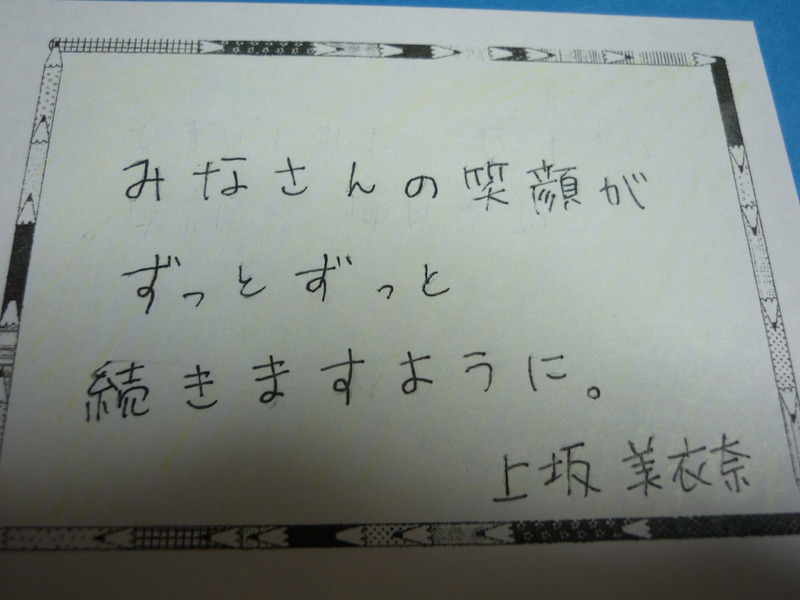 みなさんの笑顔が
ずっとずっと
続きますように。
上坂 美衣奈